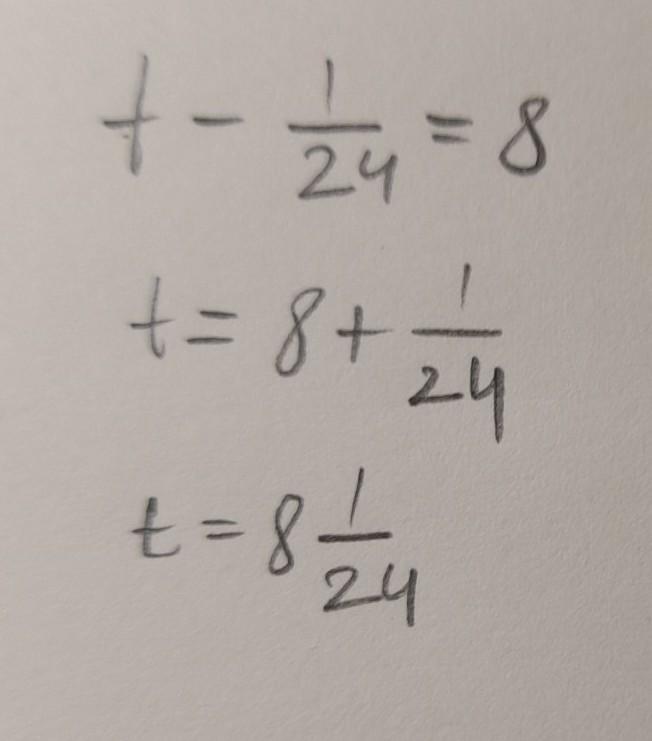 t - 1/24 = 8
t = 8 + 1/24
t = 8 1/24